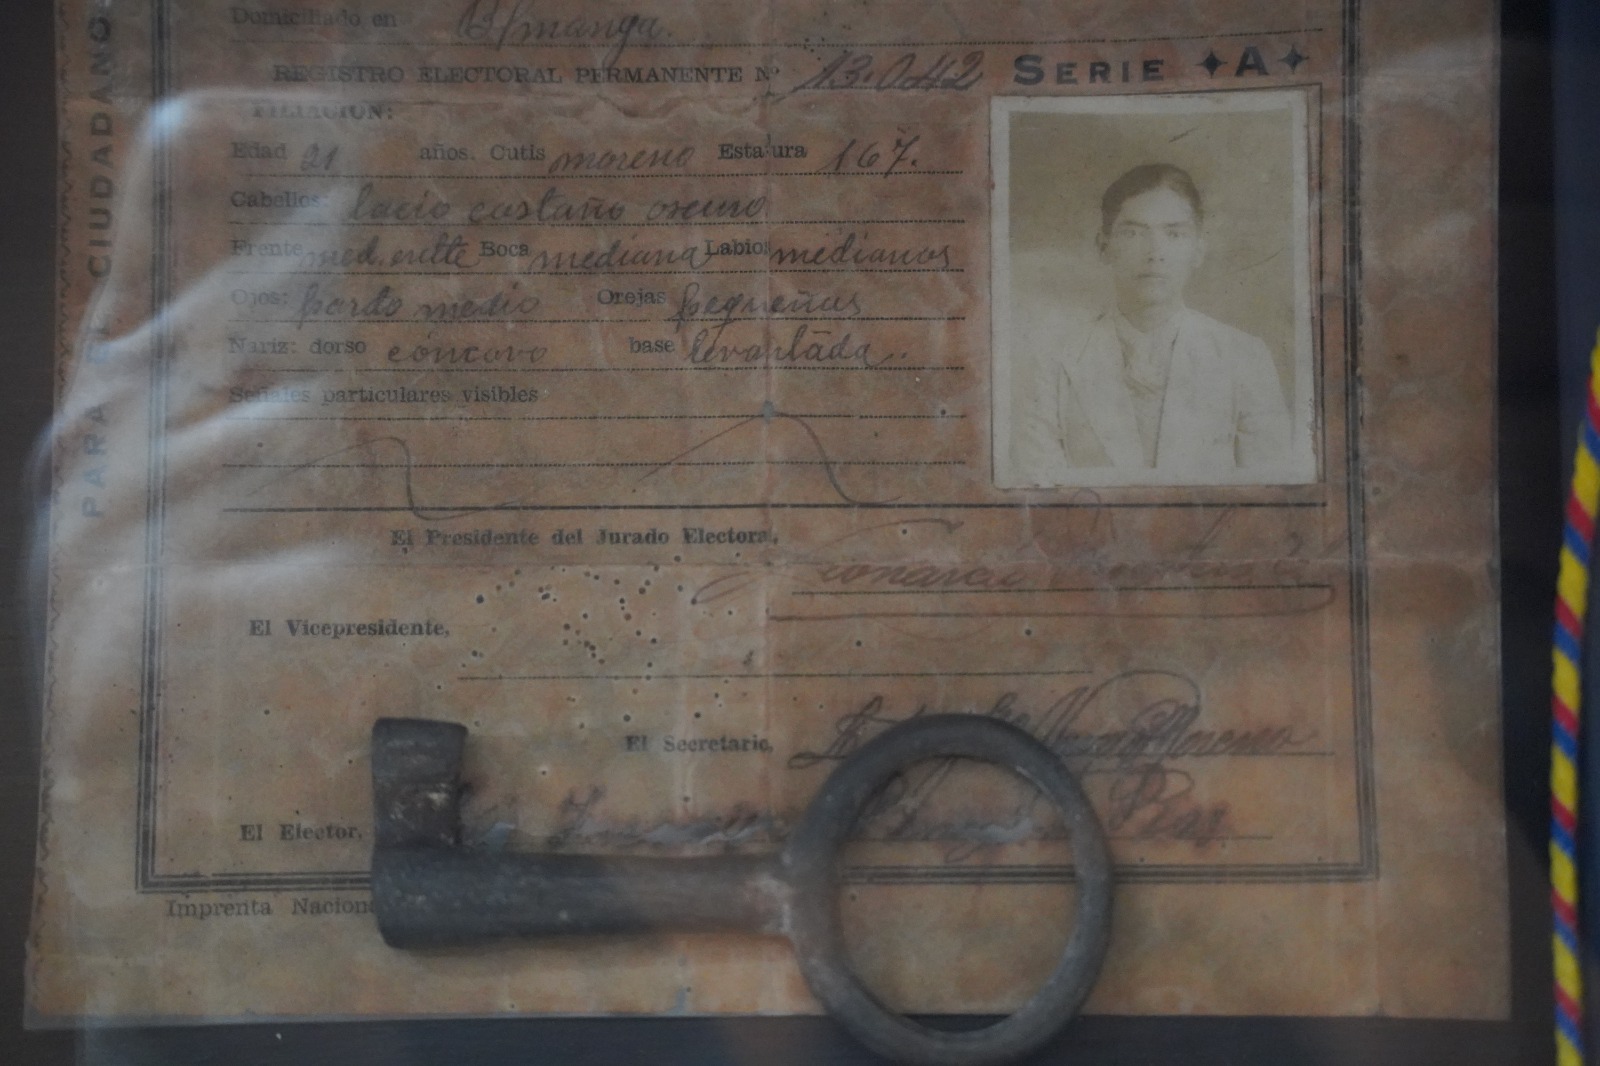 Domiciliado en B/manga.
REGISTRO ELECTORAL PERMANENTE Nº 13.042 SERIE A
FILIACION:
Edad 21 años. Cutis moreno Estatura 167.
Cabellos: lacio castaño oscuro.
Frente med. Boca mediana Labios medianos
Ojos: pardo medio Orejas pequeñas
Nariz: dorso cóncavo base levantada.
Señales particulares visibles
El Presidente del Jurado Electoral,
El Vicepresidente,
El Secretario, Moreno
El Elector,
Imprenta Nacion
PARA EL CIUDADANO